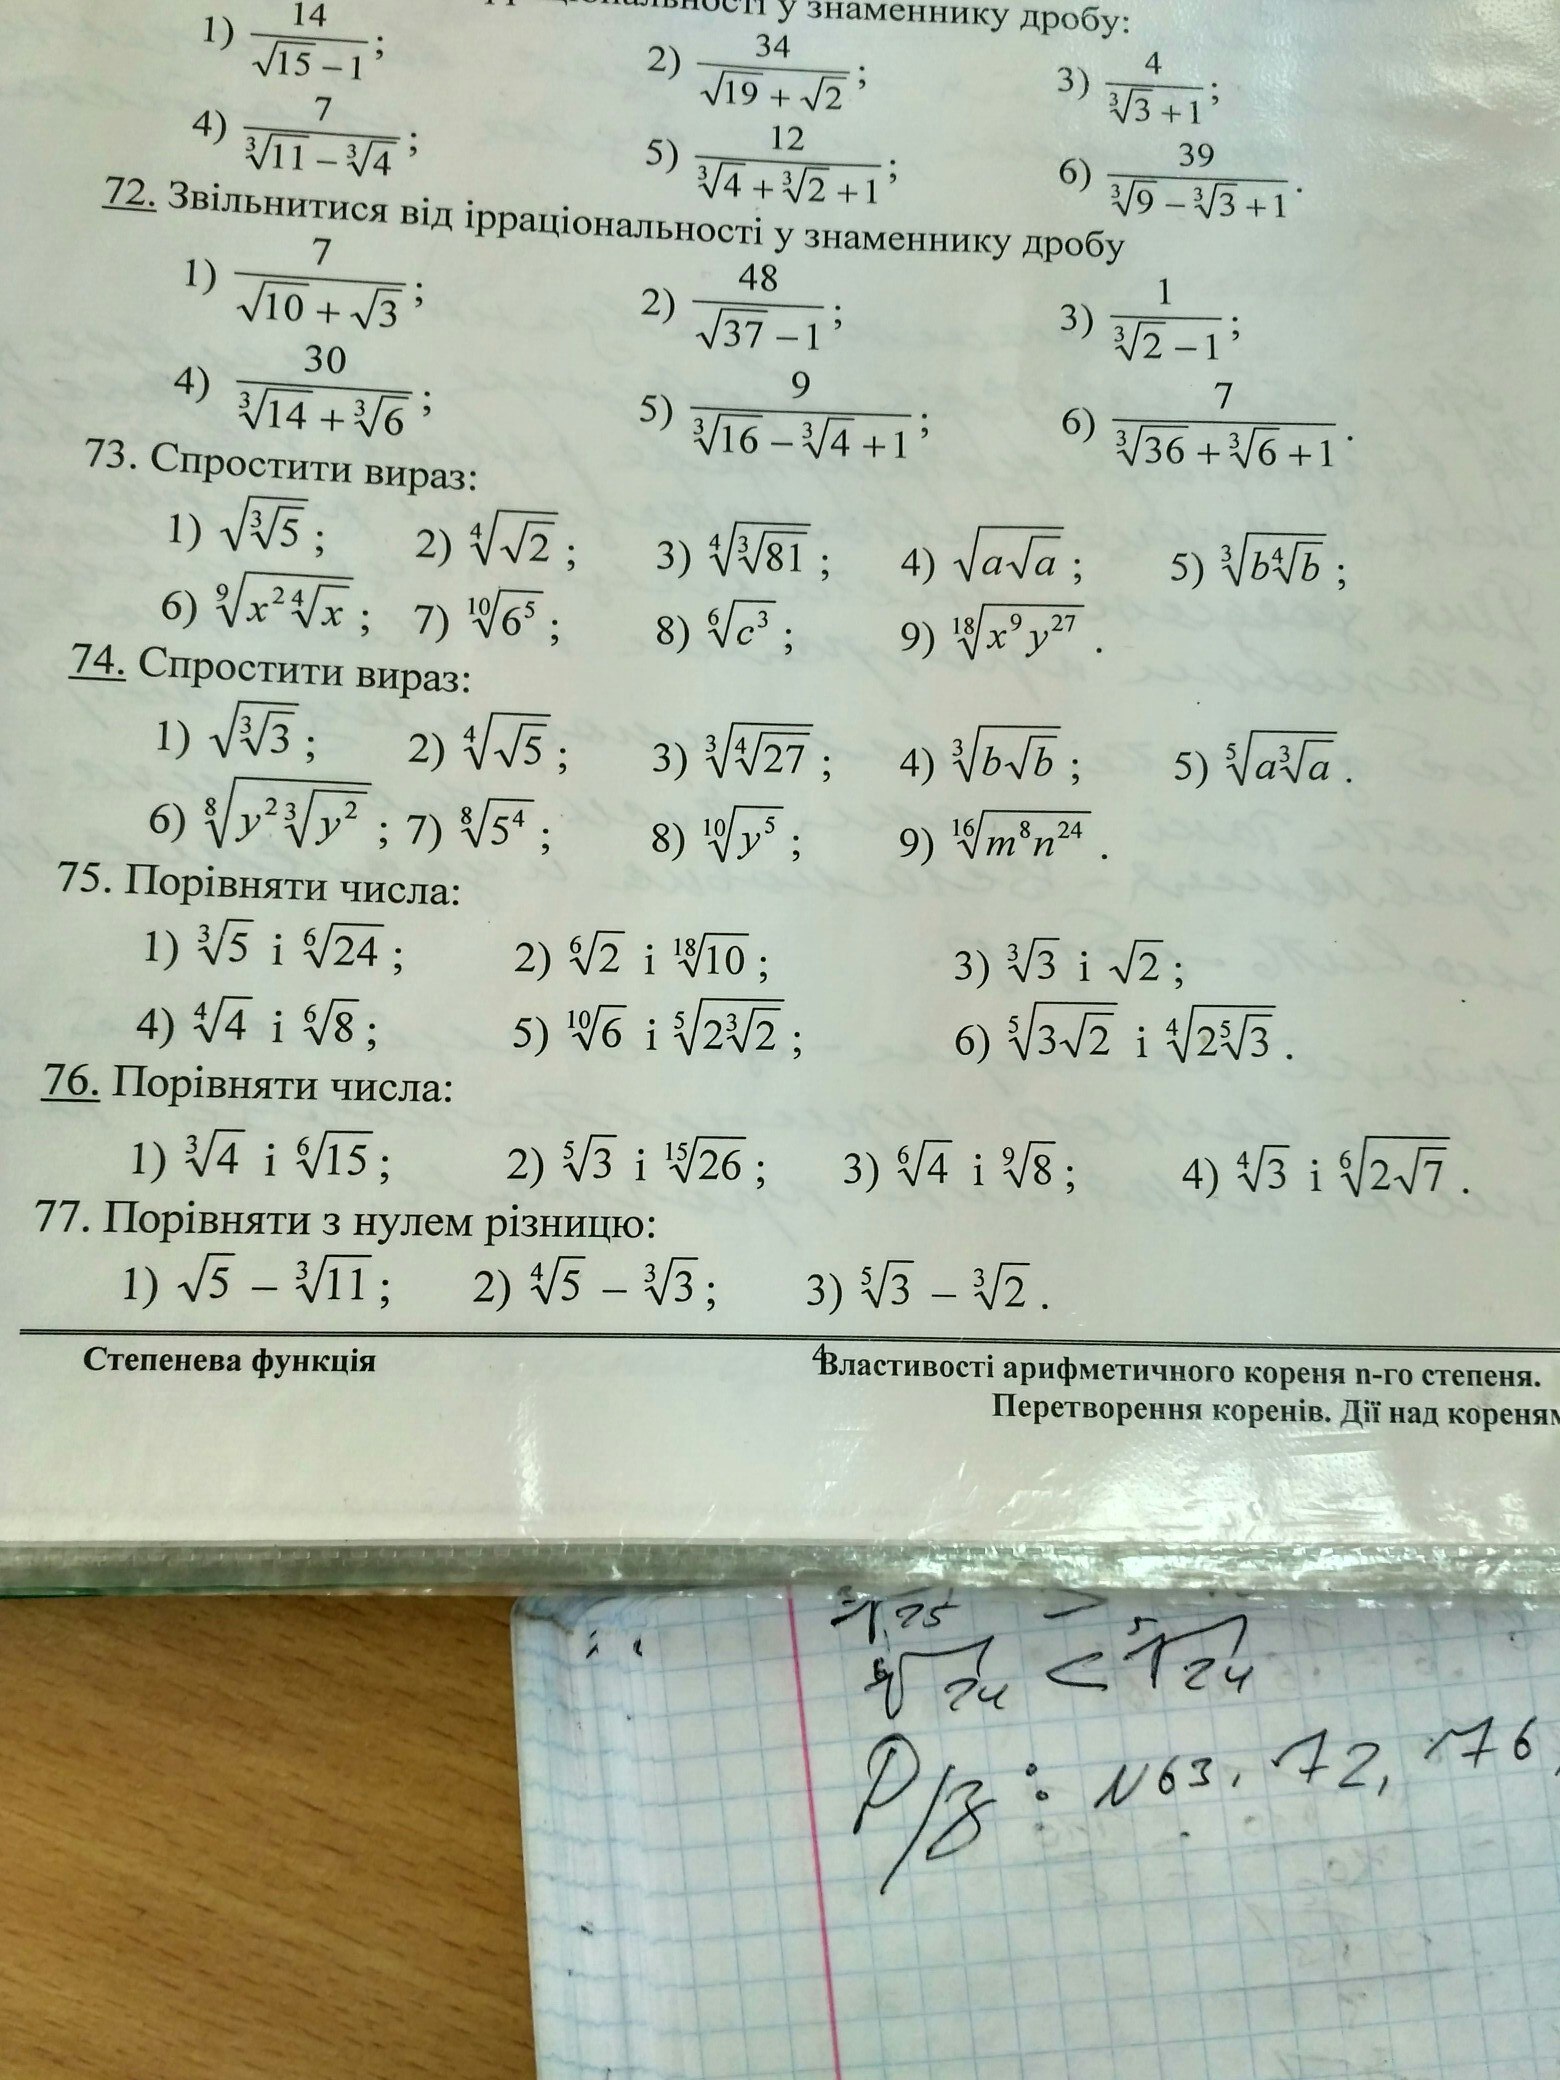 ірраціональності у знаменнику дробу:
1) 14/(√15 – 1); 2) 34/(√19 + √2); 3) 4/(∛3 + 1);
4) 7/(∛11 – ∛4); 5) 12/(∛4 + ∛2 + 1); 6) 39/(∛9 – ∛3 + 1).
72. Звільнитися від ірраціональності у знаменнику дробу
1) 7/(√10 + √3); 2) 48/(√37 – 1); 3) 1/(∛2 – 1);
4) 30/(∛14 + ∛6); 5) 9/(∛16 – ∛4 + 1); 6) 7/(∛36 + ∛6 + 1).
73. Спростити вираз:
1) √(∛5); 2) ⁴√(√2); 3) ⁴√(∛81); 4) √(a√a); 5) ∛(b⁴√b);
6) ⁹√(x² ⁴√x); 7) ¹⁰√(6⁵); 8) ⁶√(c³); 9) ¹⁸√(x⁹y²⁷).
74. Спростити вираз:
1) √(∛3); 2) ⁴√(√5); 3) ∛(⁴√27); 4) ∛(b√b); 5) ⁵√(a∛a).
6) ⁸√(y² ∛(y²)); 7) ⁸√(5⁴); 8) ¹⁰√(y⁵); 9) ¹⁶√(m⁸n²⁴).
75. Порівняти числа:
1) ∛5 і ⁶√24; 2) ⁶√2 і ¹⁸√10; 3) ∛3 і √2;
4) ⁴√4 і ⁶√8; 5) ¹⁰√6 і ⁵√(2∛2); 6) ⁵√(3√2) і ⁴√(2⁵√3).
76. Порівняти числа:
1) ∛4 і ⁶√15; 2) ⁵√3 і ¹⁵√26; 3) ⁶√4 і ⁹√8; 4) ⁴√3 і ⁶√(2√7).
77. Порівняти з нулем різницю:
1) √5 – ∛11; 2) ⁴√5 – ∛3; 3) ⁵√3 – ∛2.
Степенева функція 4 Властивості арифметичного кореня n-го степеня.
Перетворення коренів. Дії над кореням
25 >
⁶√24 < ⁵√24
Р/з: N63, 72, 76,